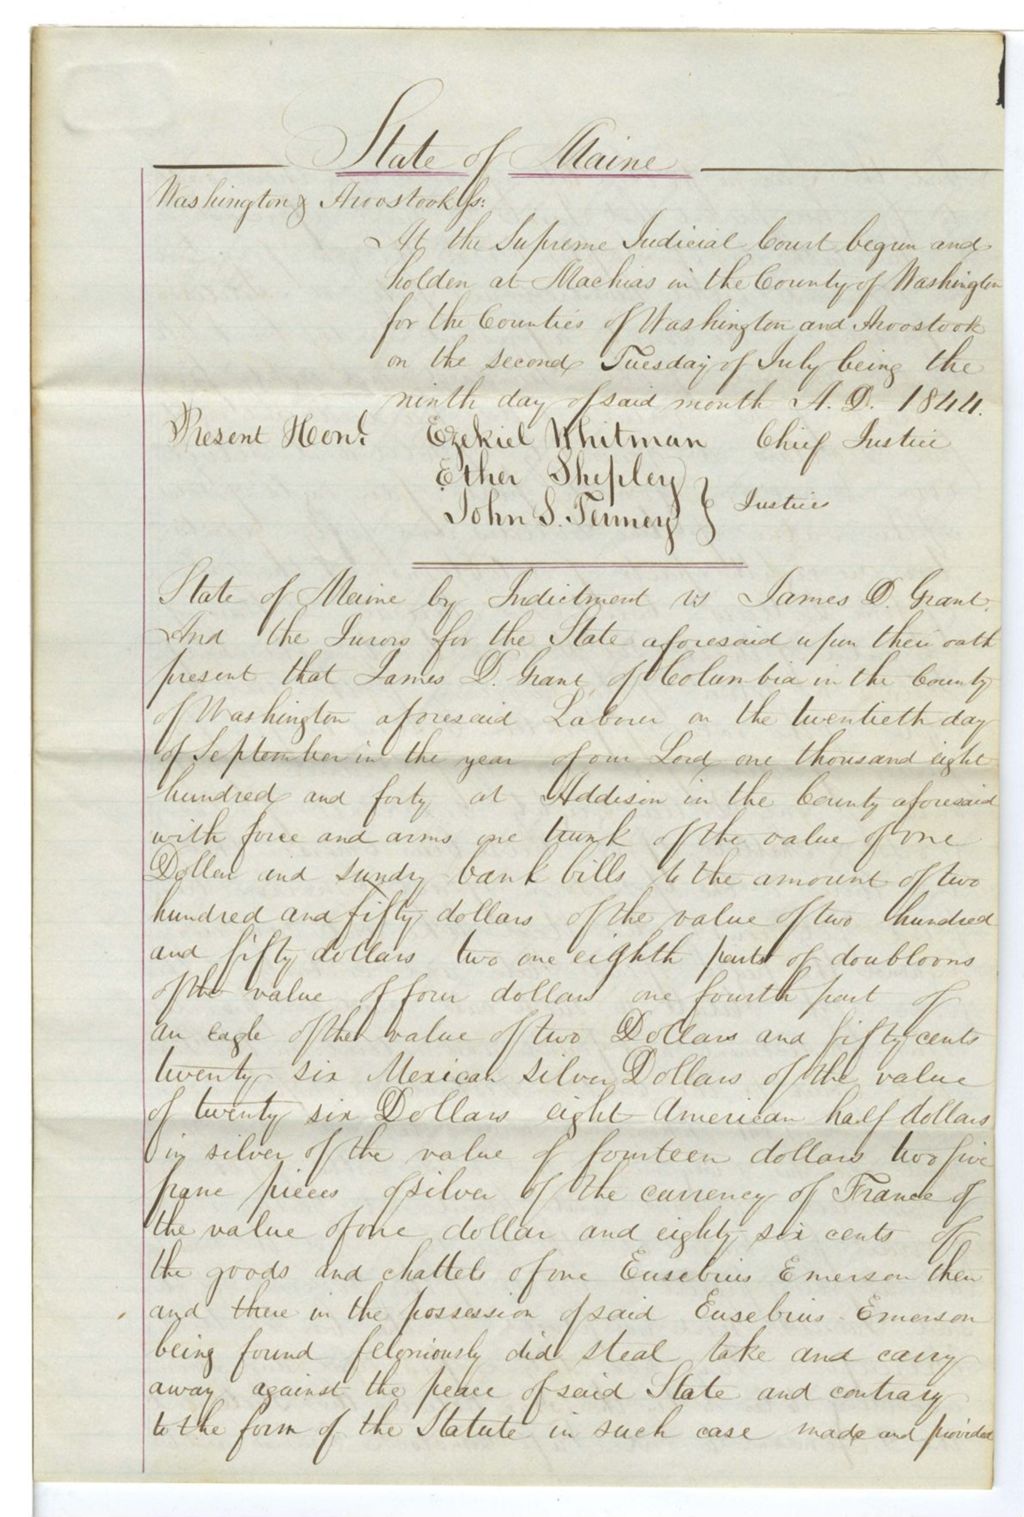 State of Maine
Washington & Aroostook ss:
At the Supreme Judicial Court begun and
holden at Machias in the County of Washington
for the Counties of Washington and Aroostook
on the second Tuesday of July being the
ninth day of said month A. D. 1844.
Present Honl. Ezekiel Whitman Chief Justice
Ether Shepley
John S. Tenney } Justices
State of Maine by Indictment vs James D. Grant.
And the Jurors for the State aforesaid upon their oath
present that James D. Grant, of Columbia in the County
of Washington aforesaid Laborer on the twentieth day
of September in the year of our Lord one thousand eight
hundred and forty at Addison in the County aforesaid
with force and arms one trunk of the value of one
Dollar and sundry bank bills to the amount of two
hundred and fifty dollars of the value of two hundred
and fifty dollars two one eighth parts of doubloons
of the value of four dollars one fourth part of
an eagle of the value of two Dollars and fifty cents
twenty six Mexican silver Dollars of the value
of twenty six Dollars eight American half dollars
in silver of the value of fourteen dollars two five
frane pieces of silver of the currency of France of
the value of one dollar and eighty six cents of
the goods and chattels of one Eusebius Emerson then
and there in the possession of said Eusebius Emerson
being found feloniously did steal take and carry
away against the peace of said State and contrary
to the form of the Statute in such case made and provided